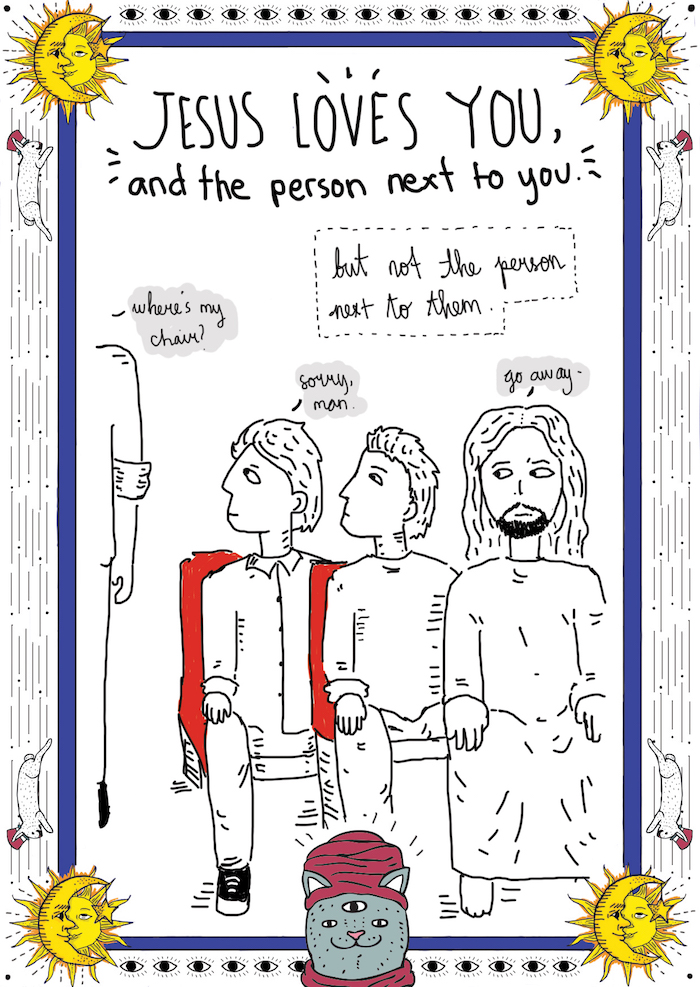 JESUS LOVES YOU,
and the person next to you.
but not the person
next to them.
where's my
chair?
sorry,
man.
go away.